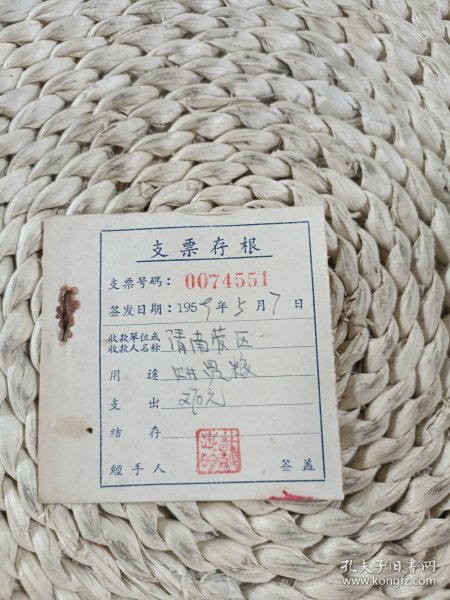 支票存根
支票号碼：0074551
签发日期：1959年5月7日
收款單位或
收款人名称 清南营区
用途
支出 270元
结存
經手人 签盖
孔夫子旧书网
www.kongfz.com